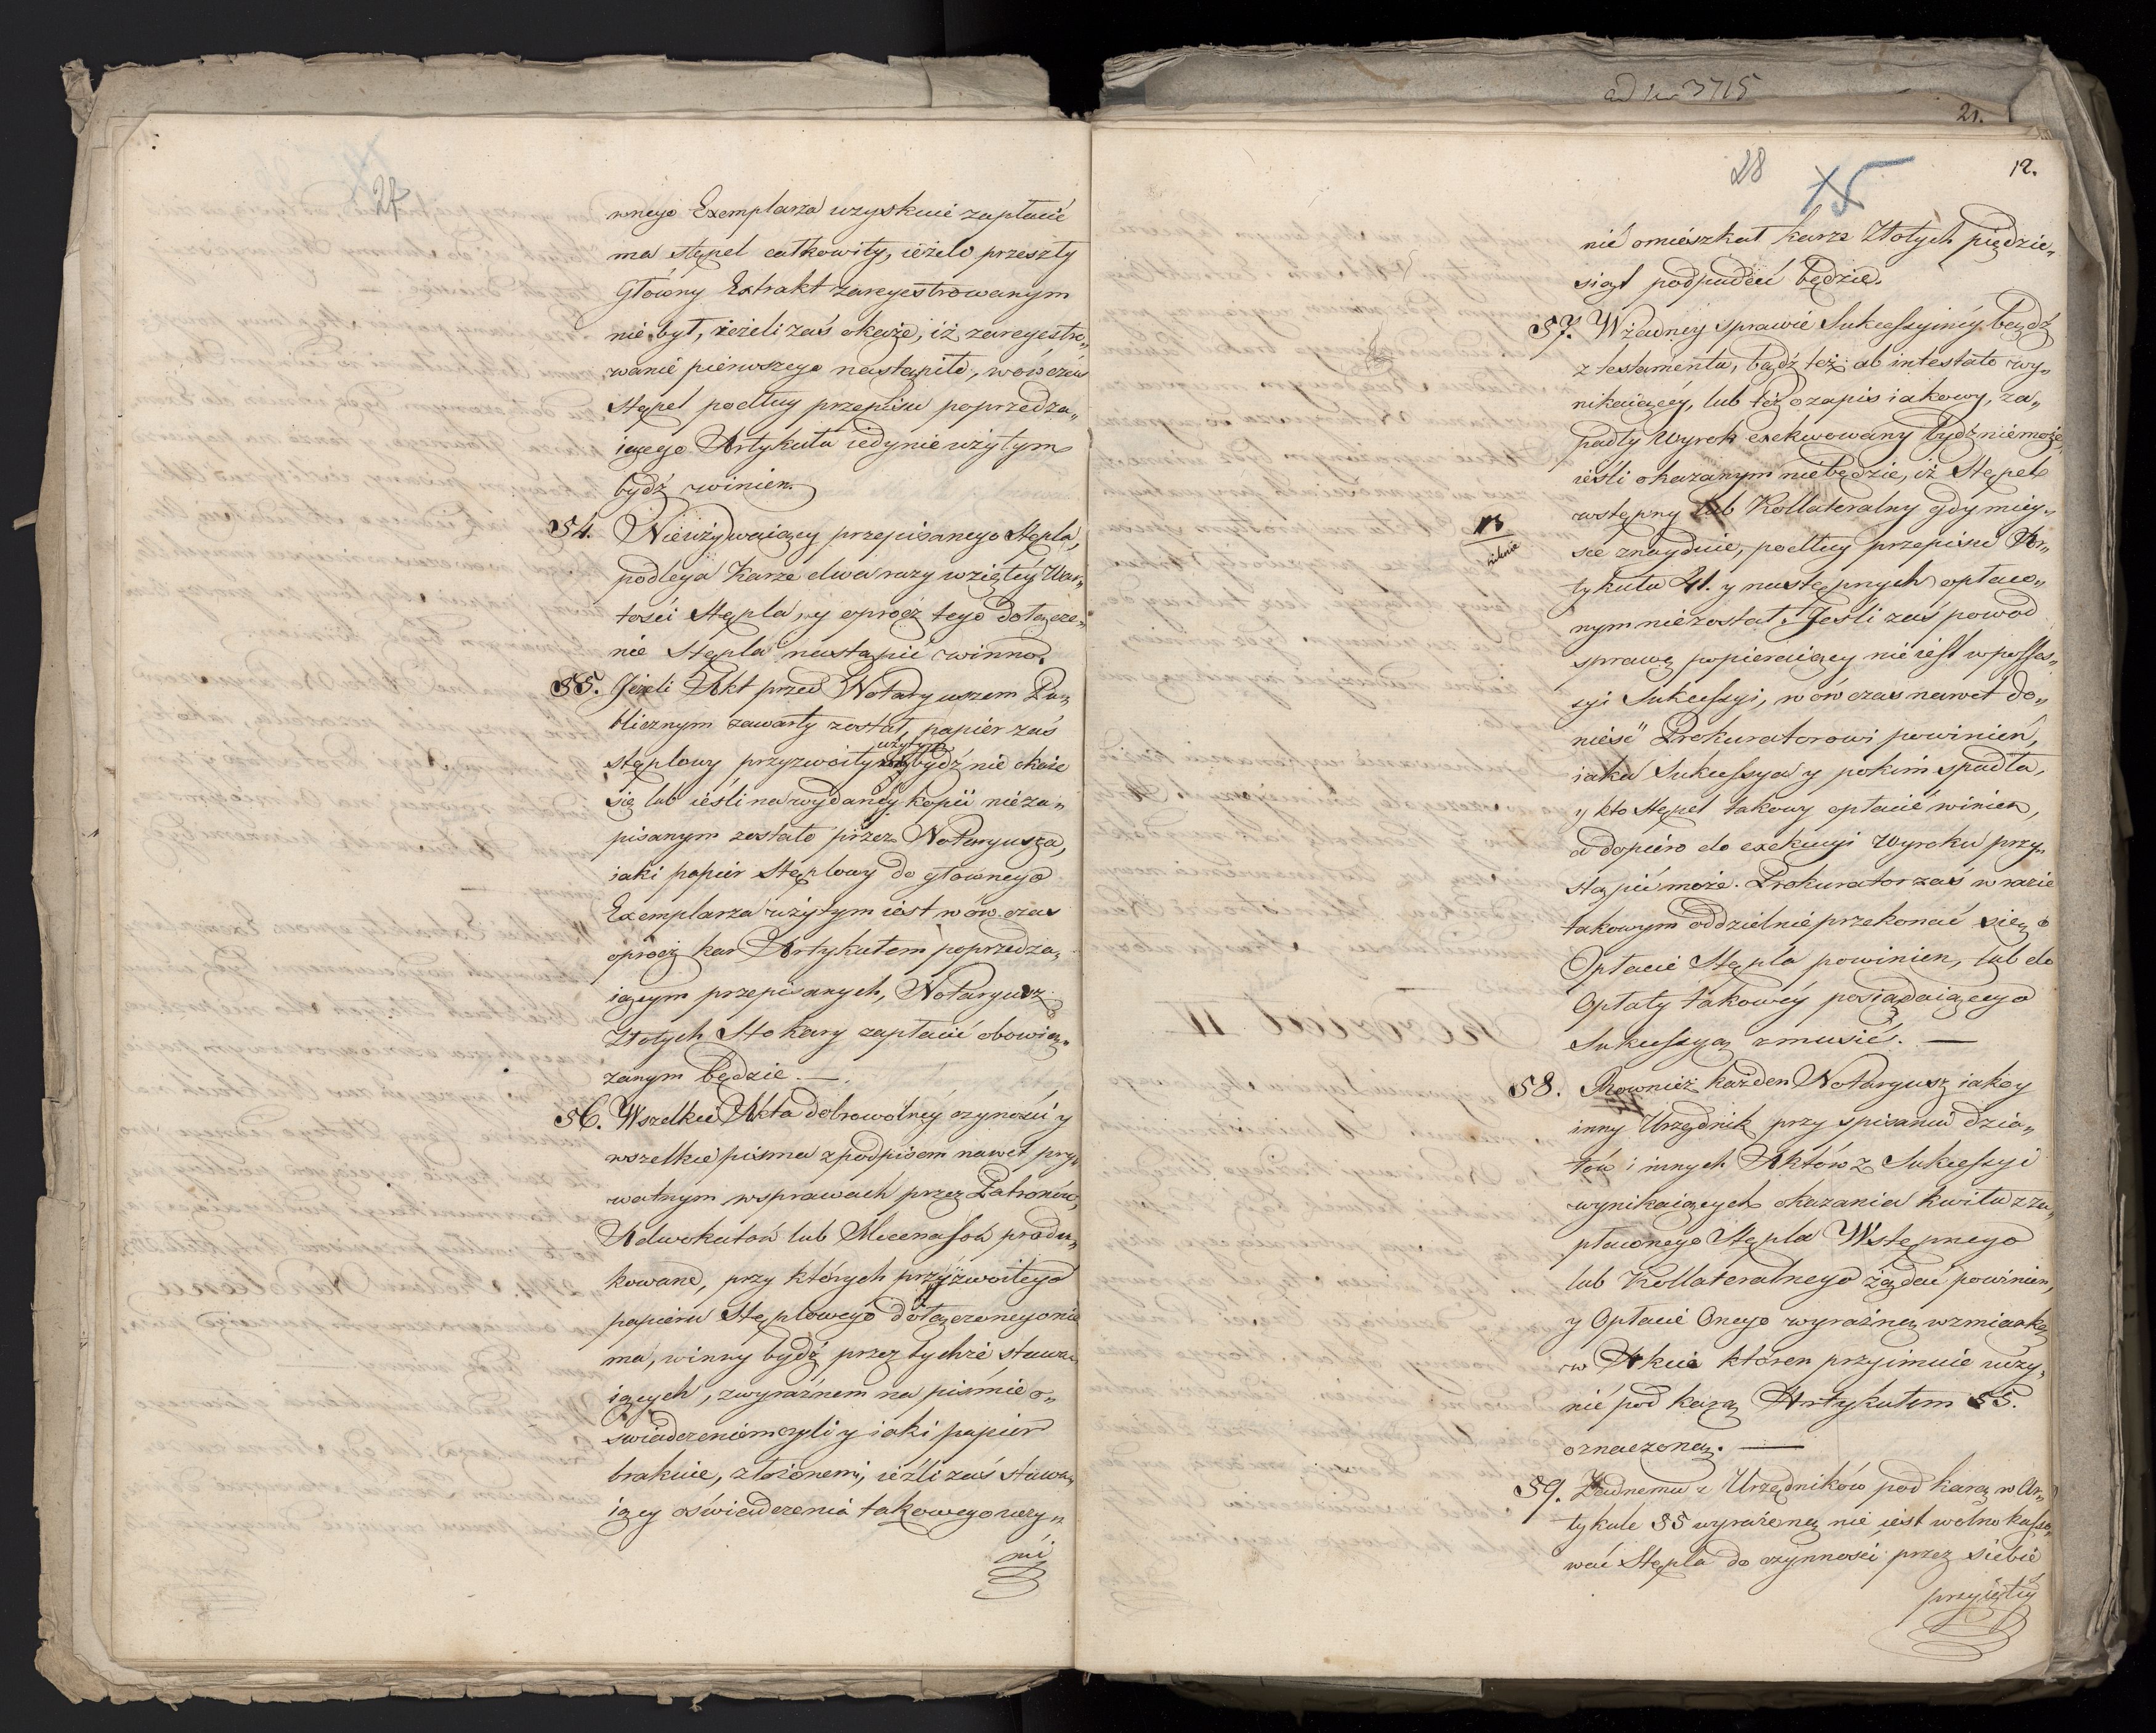 27
wnego Exemplarza uzyskuie zapłacić
ma stępel całkowity, ieżeli przeszły
Główny Extrakt zareyestrowanym
nie był, ieżeli zaś okaże, iż zareyestro„
wanie pierwszego nastąpiło, wówczas
stępel podług przepisu poprzedza„
iącego Artykułu iedynie użytym
bydź winien.
54. Nieużywaiący przepisanego Stępla,
podlega karze dwa razy wziętey War„
tości Stępla, y oprócz tego dołącze„
nie Stępla nastąpić winno.
55. Jeżeli Akt przed Notaryuszem Pu„
blicznym zawarty został, papier zaś
stęplowy przyzwoity użytym bydź nie okaże
się lub ieśli na wydaney kopii nieza„
pisanym zostało przez Notaryusza,
iaki papier Stęplowy do głownego
Exemplarza użytym iest wów czas
oprócz kar Artykułem poprzedza„
iącym przepisanych, Notaryusz
Złotych Sto kary zapłacić obowią„
zanym będzie. —
56. Wszelkie Akta dobrowolney czynności y
wszelkie pisma z podpisem nawet pry„
watnym w sprawach przez Patronów,
Adwokatów lub Mecenasów produ„
kowane, przy których przyzwoitego
papieru Stęplowego dołączonego nie
ma, winny bydź przez tychże stawa„
iących, z wyraźnem na piśmie o„
świadczeniem czyli y iaki papier
brakuie, złożonemi, ieżli zaś stawa„
iący oświadczenia takowego uczy„
ni
ad Nr 3715
21.
28
15
12.
nić omieszkał karze Złotych pięćdzie„
siąt podpadać będzie.
57. W żadney sprawie Sukcessyiney bądź
z testamentu, bądź też ab intestato wy„
nikaiącey, lub też o zapis iakowy, za„
padły Wyrok exekwowany bydź niemoże
ieśli okazanym niebędzie, iż Stępel
wstępny lub Kollateralny gdy miey„
sce znayduie, podług przepisu Ar„
tykułu 41. y następnych opłaco„
nym niezostał. Jeśli zaś powod
sprawę popieraiący nie iest w posses„
syi Sukcessyi, wów czas nawet do„
nieść Prokuratorowi powinien,
iaka Sukcessya y po kim spadła,
y kto Stępel takowy opłacić winien,
a dopiero do exekucyi Wyroku przy„
stąpić może. Prokurator zaś w razie
takowym oddzielnie przekonać się o
Opłacie Stępla powinien, lub do
Opłaty takowey posiądaiącego
Sukcessyą zmusić. —
58. Rownież każden Notaryusz iako y
inny Urzędnik przy spisaniu dzia„
łów i innych Aktów z Sukcessyi
wynikaiących okazania kwitu z za„
płaconego Stępla Wstępnego
lub Kollateralnego żądać powinien,
y Opłacie Onego wyraźną wzmiankę
w Akcie któren przyimuie uczy„
nić pod karą Artykułem 55.
oznaczoną. —
59. Żadnemu z Urzędników pod karą w Ar„
tykule 55 wyrażoną nie iest wolno kasso„
wać Stępla do czynności przez siebie
przyiętey